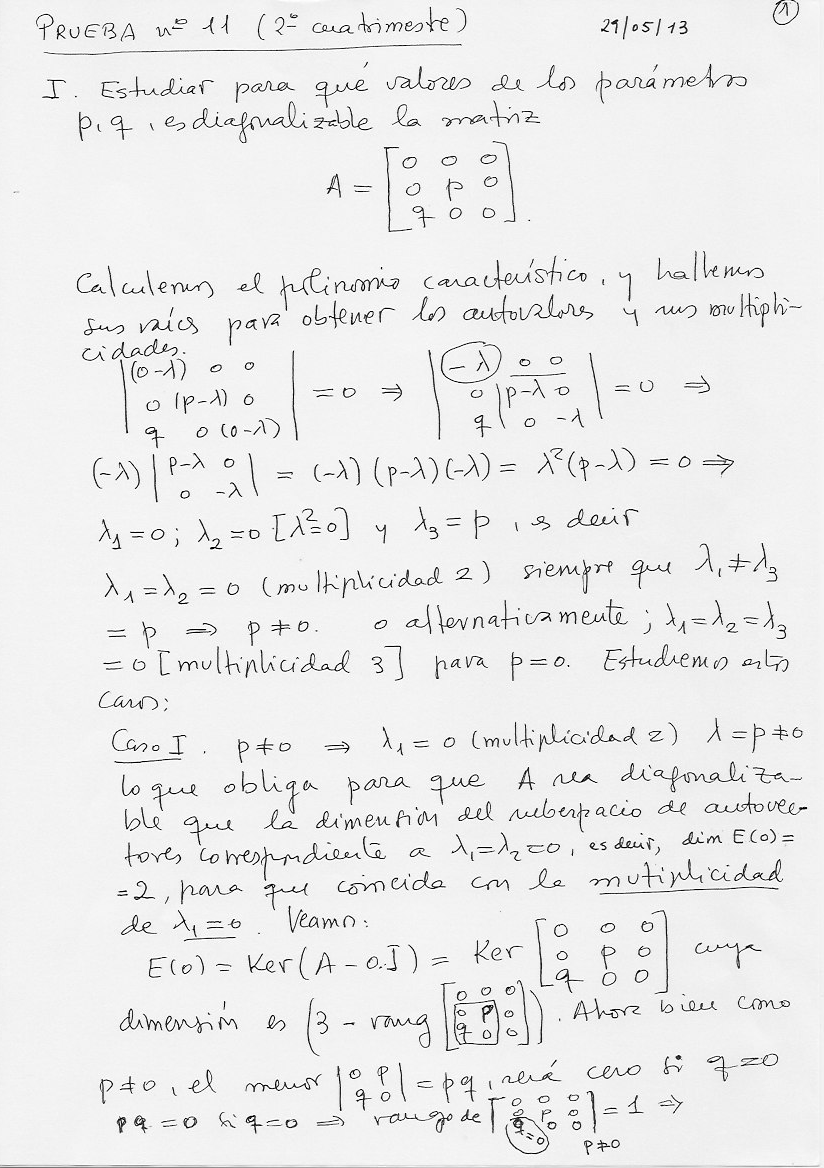 PRUEBA nº 11 (2º cuatrimestre) 29/05/13 1
I. Estudiar para qué valores de los parámetros
p, q, es diagonalizable la matriz
A = [0 0 0
0 p 0
q 0 0].
Calculemos el polinomio característico, y hallemos
sus raíces para obtener los autovalores y sus multipli-
cidades.
|(0-λ) 0 0
0 (p-λ) 0
q 0 (0-λ)| = 0 ⇒ |-λ 0 0
0 p-λ 0
q 0 -λ| = 0 ⇒
(-λ) |p-λ 0
0 -λ| = (-λ)(p-λ)(-λ) = λ²(p-λ) = 0 ⇒
λ₁=0; λ₂=0 [λ²=0] y λ₃=p, es decir
λ₁=λ₂=0 (multiplicidad 2) siempre que λ₁≠λ₃
=p ⇒ p≠0. o alternativamente; λ₁=λ₂=λ₃
=0 [multiplicidad 3] para p=0. Estudiemos estos
casos:
Caso I. p≠0 ⇒ λ₁=0 (multiplicidad 2) λ=p≠0
lo que obliga para que A sea diagonaliza-
ble que la dimensión del subespacio de autovec-
tores correspondiente a λ₁=λ₂=0, es decir, dim E(0)=
=2, para que coincida con la mutiplicidad
de λ₁=0. Veamos:
E(0) = Ker(A-0.I) = Ker [0 0 0
0 p 0
q 0 0] cuya
dimensión es (3 - rang [0 0 0
0 p 0
q 0 0]). Ahora bien como
p≠0, el menor |0 p
q 0| = pq, será cero si q=0
pq=0 si q=0 ⇒ rango de [0 0 0
0 p 0
q=0 0 0] = 1 ⇒
p≠0